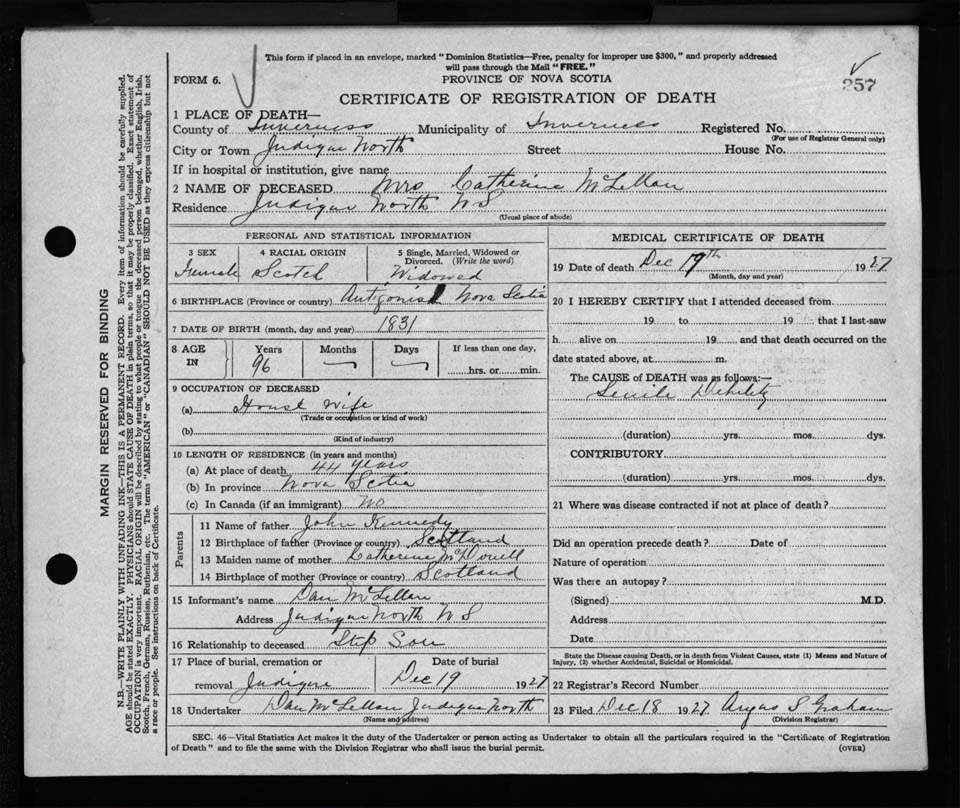 This form if placed in an envelope, marked "Dominion Statistics—Free, penalty for improper use $300," and properly addressed
will pass through the Mail "FREE."
FORM 6.
PROVINCE OF NOVA SCOTIA
257
CERTIFICATE OF REGISTRATION OF DEATH
1 PLACE OF DEATH—
County of Inverness Municipality of Inverness Registered No.
(For use of Registrar General only)
City or Town Judique North Street House No.
If in hospital or institution, give name
2 NAME OF DECEASED Mrs Catherine McLellan
Residence Judique North N S
(Usual place of abode)
PERSONAL AND STATISTICAL INFORMATION
3 SEX 4 RACIAL ORIGIN 5 Single, Married, Widowed or
Divorced. (Write the word)
Female Scotch Widowed
6 BIRTHPLACE (Province or country) Antigonish Nova Scotia
7 DATE OF BIRTH (month, day and year) 1831
8 AGE IN Years Months Days If less than one day,
96 hrs. or min.
9 OCCUPATION OF DECEASED
(a) House Wife
(Trade or occupation or kind of work)
(b)
(Kind of industry)
10 LENGTH OF RESIDENCE (in years and months)
(a) At place of death 44 years
(b) In province Nova Scotia
(c) In Canada (if an immigrant) No
Parents
11 Name of father John Kennedy
12 Birthplace of father (Province or country) Scotland
13 Maiden name of mother Catherine
14 Birthplace of mother (Province or country) Scotland
15 Informant's name Dan McLellan
Address Judique North N S
16 Relationship to deceased Step Son
17 Place of burial, cremation or Date of burial
removal Judique Dec 19 1927
18 Undertaker Dan McLellan Judique North
(Name and address)
MEDICAL CERTIFICATE OF DEATH
19 Date of death Dec th 1927
(Month, day and year)
20 I HEREBY CERTIFY that I attended deceased from
19 to 19 that I last saw
h alive on 19 and that death occurred on the
date stated above, at m.
The CAUSE of DEATH was as follows:—
Senile Debility
(duration) yrs. mos. dys.
CONTRIBUTORY
(duration) yrs. mos. dys.
21 Where was disease contracted if not at place of death?
Did an operation precede death? Date of
Nature of operation
Was there an autopsy?
(Signed) M.D.
Address
Date
State the Disease causing Death, or in death from Violent Causes, state (1) Means and Nature of
Injury, (2) whether Accidental, Suicidal or Homicidal.
22 Registrar's Record Number
23 Filed Dec 18 1927 Angus S Graham
(Division Registrar)
SEC. 46—Vital Statistics Act makes it the duty of the Undertaker or person acting as Undertaker to obtain all the particulars required in the "Certificate of Registration
of Death" and to file the same with the Division Registrar who shall issue the burial permit.
(OVER)
MARGIN RESERVED FOR BINDING
N.B.—WRITE PLAINLY WITH UNFADING INK—THIS IS A PERMANENT RECORD. Every item of information should be carefully supplied.
AGE should be stated EXACTLY. PHYSICIANS should STATE CAUSE OF DEATH in plain terms, so that it may be properly classified. Exact statement of
OCCUPATION is very important. RACIAL ORIGIN will be described by stating to what people or tongue the deceased person belonged, whether English, Irish,
Scotch, French, German, Russian, Ruthenian, etc. The terms "AMERICAN" or "CANADIAN" SHOULD NOT BE USED as they express citizenship but not
a race or people. See instructions on back of Certificate.